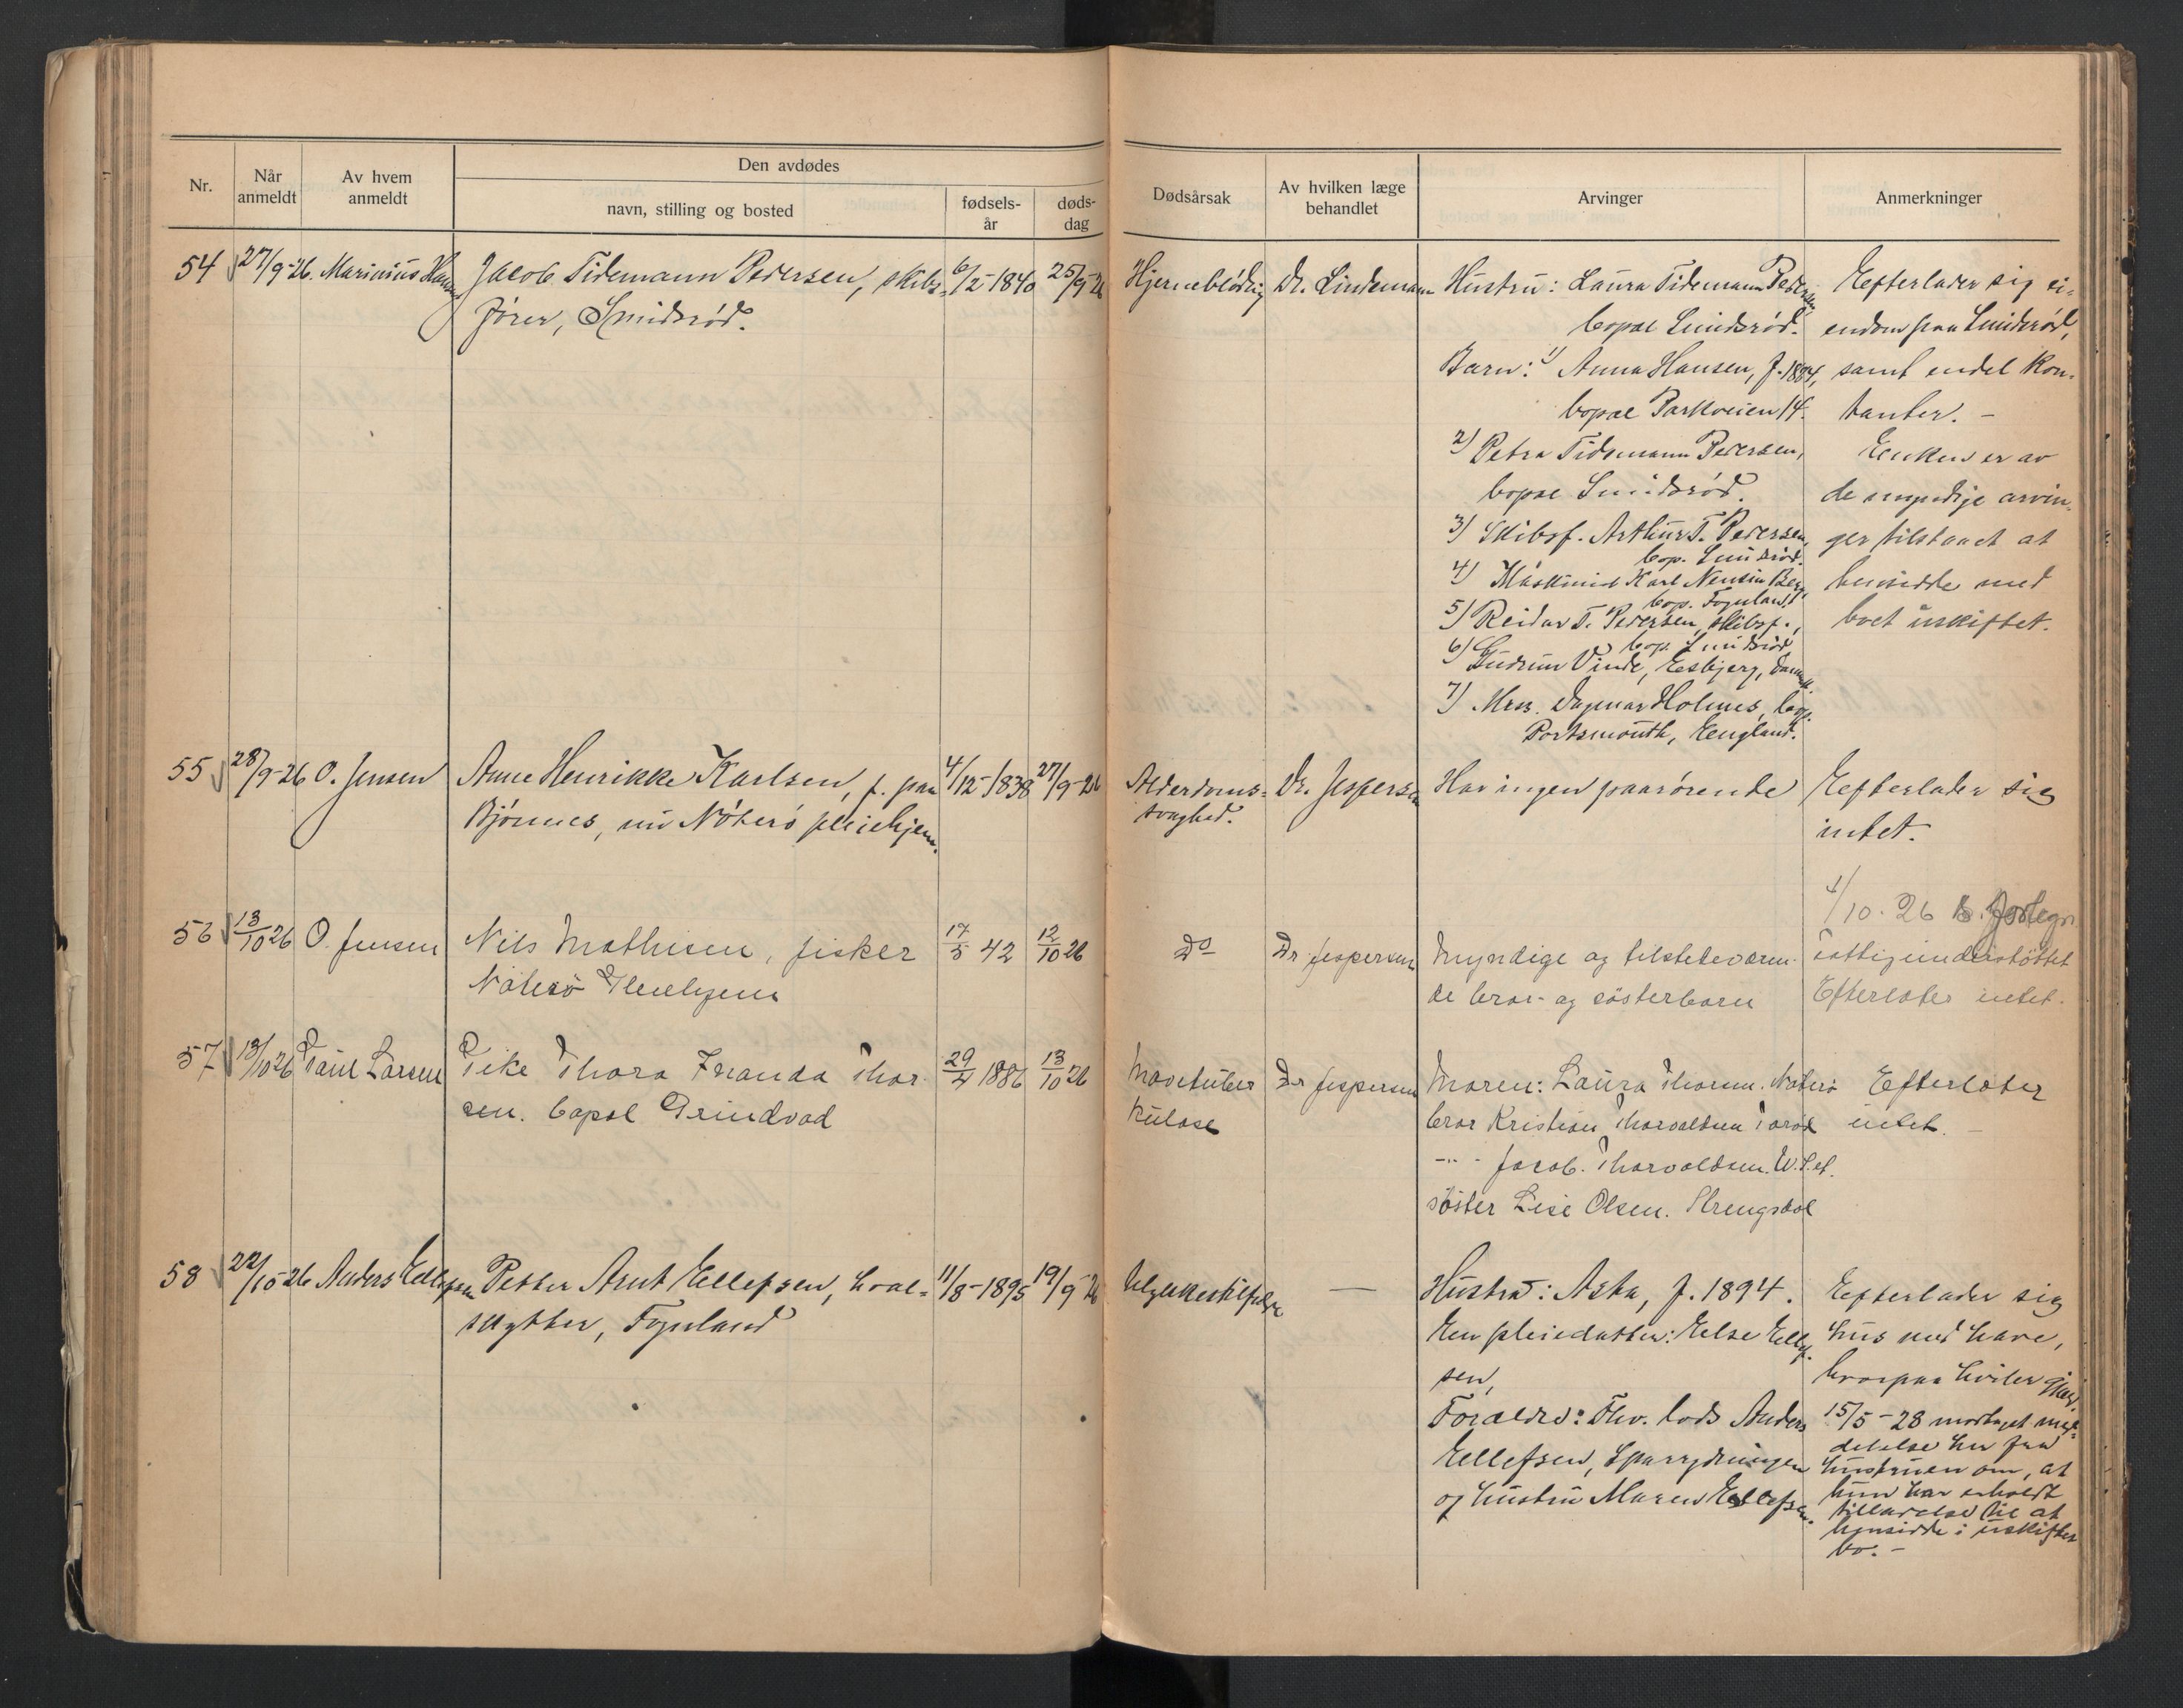 Nr.
Når anmeldt
Av hvem anmeldt
Den avdødes
navn, stilling og bosted
fødsels-år
døds-dag
Dødsårsak
Av hvilken læge behandlet
Arvinger
Anmerkninger
54 27/9-26. Marinius Hansen Jacob Tidemann Pedersen, skibs- 6/2-1840 25/9-26
fører, Smidsrød.
Hjerneblødnig Dr. Lindemann
Hustru: Laura Tidemann Pedersen,
bopæl Smidsrød.
Barn: 1) Anna Hansen, f. 1884,
bopæl Parkveien 14.
2) Petra Tidemann Pedersen,
bopæl Smidsrød.
3) Skibsf. Arthur T. Pedersen,
bop. Smidsrød.
4) Maskinist Karl Berg,
bop. Føynland.
5) Reidar T. Pedersen, skibsf.,
bop. Smidsrød
6) Gudrun Vinde, Esbjerg, Danmark.
7) Mrs. Dagmar Holmes, bop.
Portsmouth, England.
Efterlader sig ei-
endom paa Smidsrød,
samt endel kon-
tanter. –
Enken er av
de myndige arvin-
ger tilstaaet at
hensidde med
boet uskiftet.
55 28/9-26 O. Jensen Anne Henrikke Karlsen, f. paa 4/12-1838 27/9-26
Bjønnes, nu Nøterø pleiehjem.
Alderdoms-
svaghed.
Dr. Jespersen
Har ingen paarørende
Efterlader sig
intet.
1/10. 26
56 13/10 26 O. Jensen Nils Mathisen, fisker 17/5 42 12/10 26
Nøterø Pleiehjem
Do Dr Jespersen
Myndige og tilstedeværen-
de bror- og søsterbarn
Fattigunderstøttet
Efterlater intet.
57 13/10 26 Paul Larsen Pike Thora Franda Thor- 29/4 1886 13/10 26
sen. bopæl Grindvad
Mavetuber
kulose
Dr Jespersen
Moren: Laura Thorsen. Nøterø
bror Kristian Thorvaldsen Torød
–"– Jacob. Thorvaldsen.
søster Lise Olsen. Strengsdal
Efterlater
intet. –
58 22/10-26 Anders Ellefsen Petter Arnt Ellefsen, hval- 11/8-1895 19/9-26
skytter, Føynland
Ulykkestilfælde —
Hustru: Asta, f. 1894.
En pleiedatter: Else Ellef-
sen,
Forældre: Fhv. lods Anders
Ellefsen,
og hustru Maren Ellefsen.
Efterlader sig
hus med have,
hvorpaa hviler gjæld.
15/5-28 mottaget med-
delelse her fra
hustruen om, at
hun har erholdt
tilladelse til at
hensidde i uskiftet
bo. –